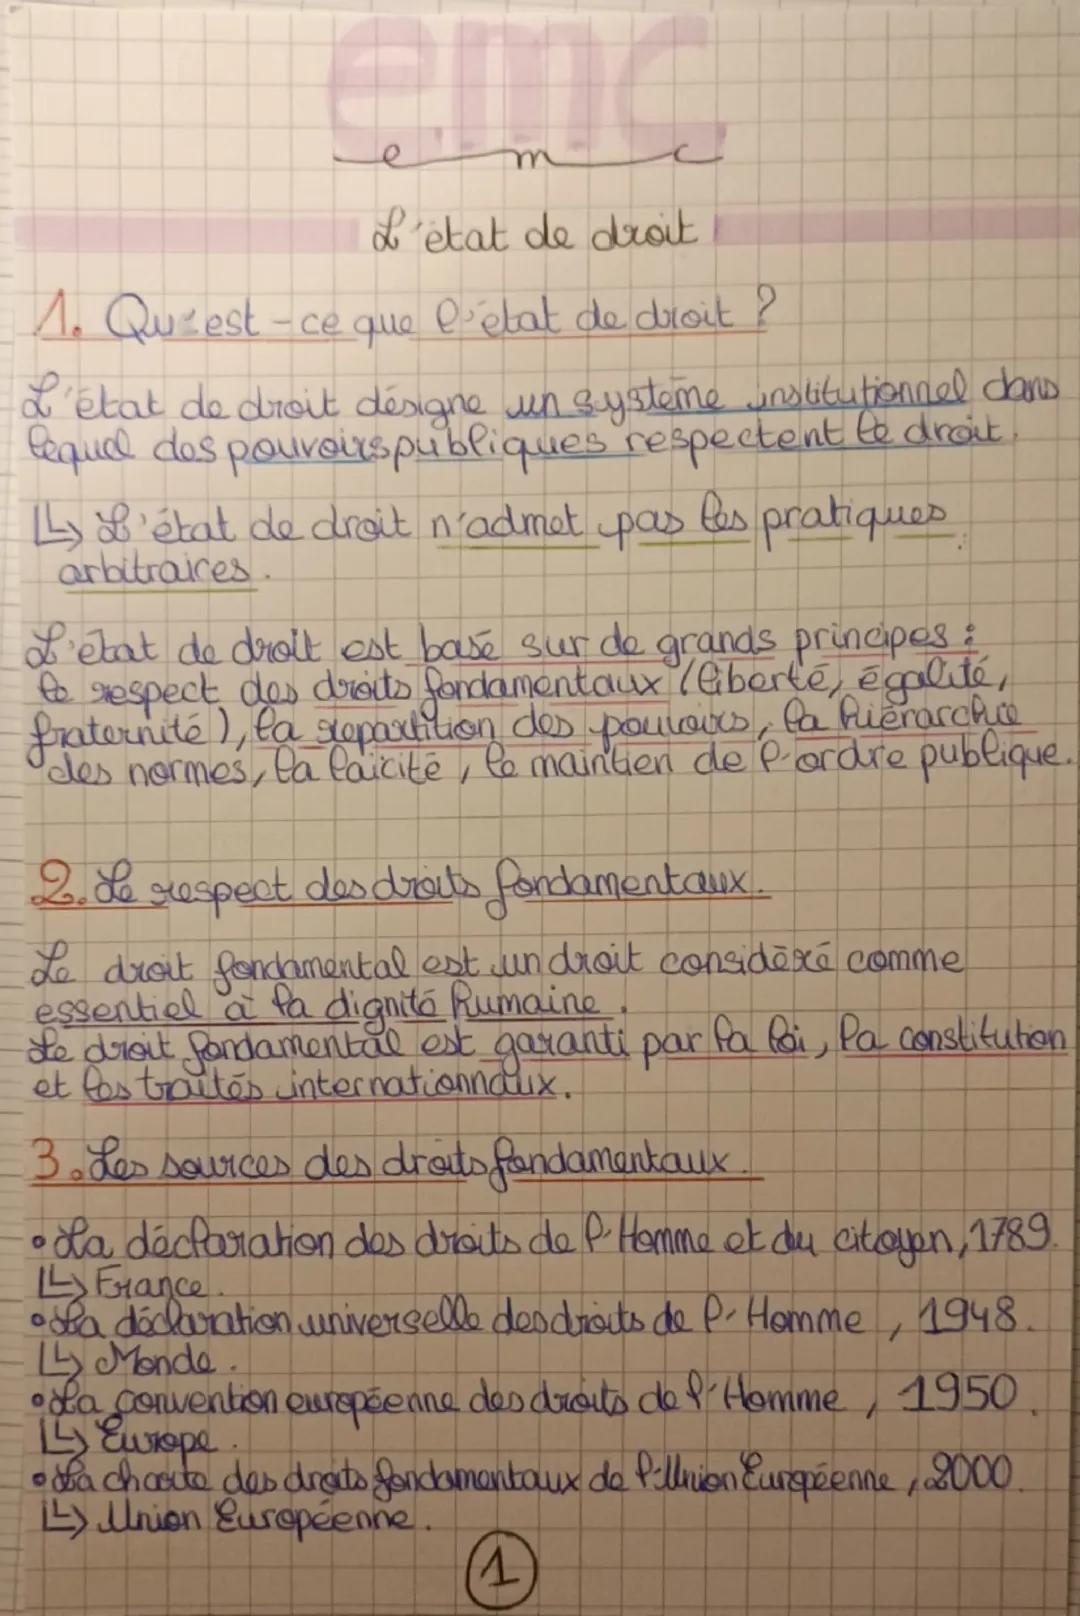 emc
e m c
L'état de droit
1. Qu'est-ce que l'état de droit ?
L'état de droit désigne un système institutionnel dans
lequel des pouvoirs publiques respectent le droit.
↳ L'état de droit n'admet pas les pratiques
arbitraires.
L'état de droit est basé sur de grands principes :
le respect des droits fondamentaux (liberté, égalité,
fraternité), la repartition des pouvoirs, la hiérarchie
des normes, la laicité, le maintien de l'ordre publique.
2. Le respect des droits fondamentaux.
Le droit fondamental est un droit considéré comme
essentiel à la dignité humaine.
Le droit fondamental est garanti par la loi, la constitution
et les traités internationnaux.
3. Les sources des droits fondamentaux.
• La déclaration des droits de l'Homme et du citoyen, 1789.
↳ France.
• La déclaration universelle des droits de l'Homme, 1948.
↳ Monde.
• La convention européenne des droits de l'Homme, 1950.
↳ Europe.
• La charte des droits fondamentaux de l'Union Européenne, 2000.
↳ Union Européenne.
1